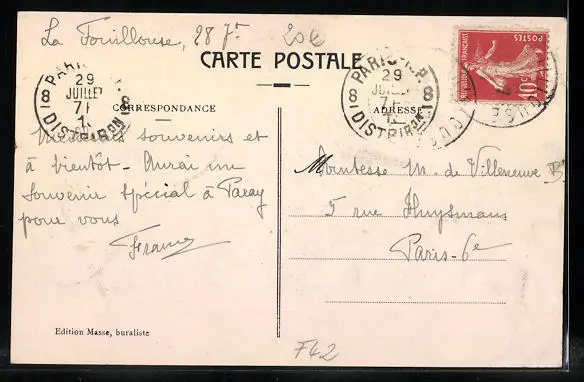 La Fouillouse, 28 Jt
CARTE POSTALE
PARIS R.P
29
JUILLET
8 71 8
DISTRIBON
POSTES
REPUBLIQUE FRANÇAISE
10c
PARIS R.P
29
JUILLET
8 71 8
DISTRIBON
CORRESPONDANCE
ADRESSE
Meilleurs souvenirs et
à bientôt - Aurai un
souvenir spécial à Paray
pour vous
Franz
Comtesse M. de Villeneuve B
5 rue Huysmans
Paris-6e
Edition Masse, buraliste
F42